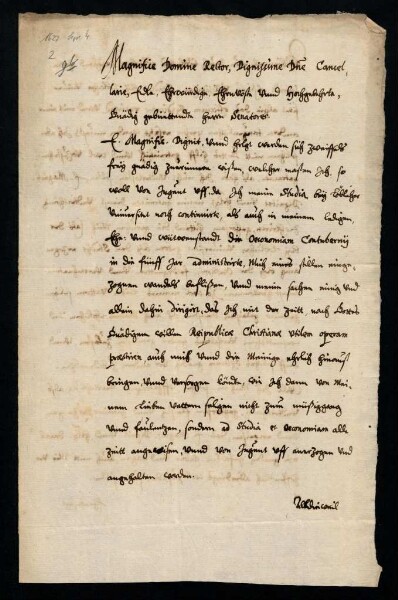 Magnifice Domine Rector, Dignissime Dne Cancel-
larie, Edle Ehrwürdige Ehrnveste vund Hochgelehrte,
Gnädig gebiettende herrn Senatores
E. Magnific. Dignit. vund herl. werden sich zweiffels
frey gnädig zuerinnern wissen welcher massen Ich, so
woll von Jugent vff da Ich meine studia bey löblicher
Vniuersitet noch continuirt, als auch in meinem ledigen,
Ehe vund wittwenstandt die Oeconomiam Contubernij
in die fünff Jar administrirt, Mich eines stillen einge-
zognen wandels beflissen, vund meine sachen einig vnd
allein dahin dirigirt, das Ich mit der zeitt nach Gottes
Gnädigem willen Reipublicæ Christianæ vtilem operam
præstiren auch mich vund die Meinige ehrlich hinauß
bringen, vund versorgen köndte, wie Ich dann von Mei-
nem Lieben vattern seligen nicht zum müßiggang
vund faulentzen, sondern ad studia et oeconomiam alle
zeitt angewisen, vund von Jugent vff aufferzogen vnd
angehalten worden.